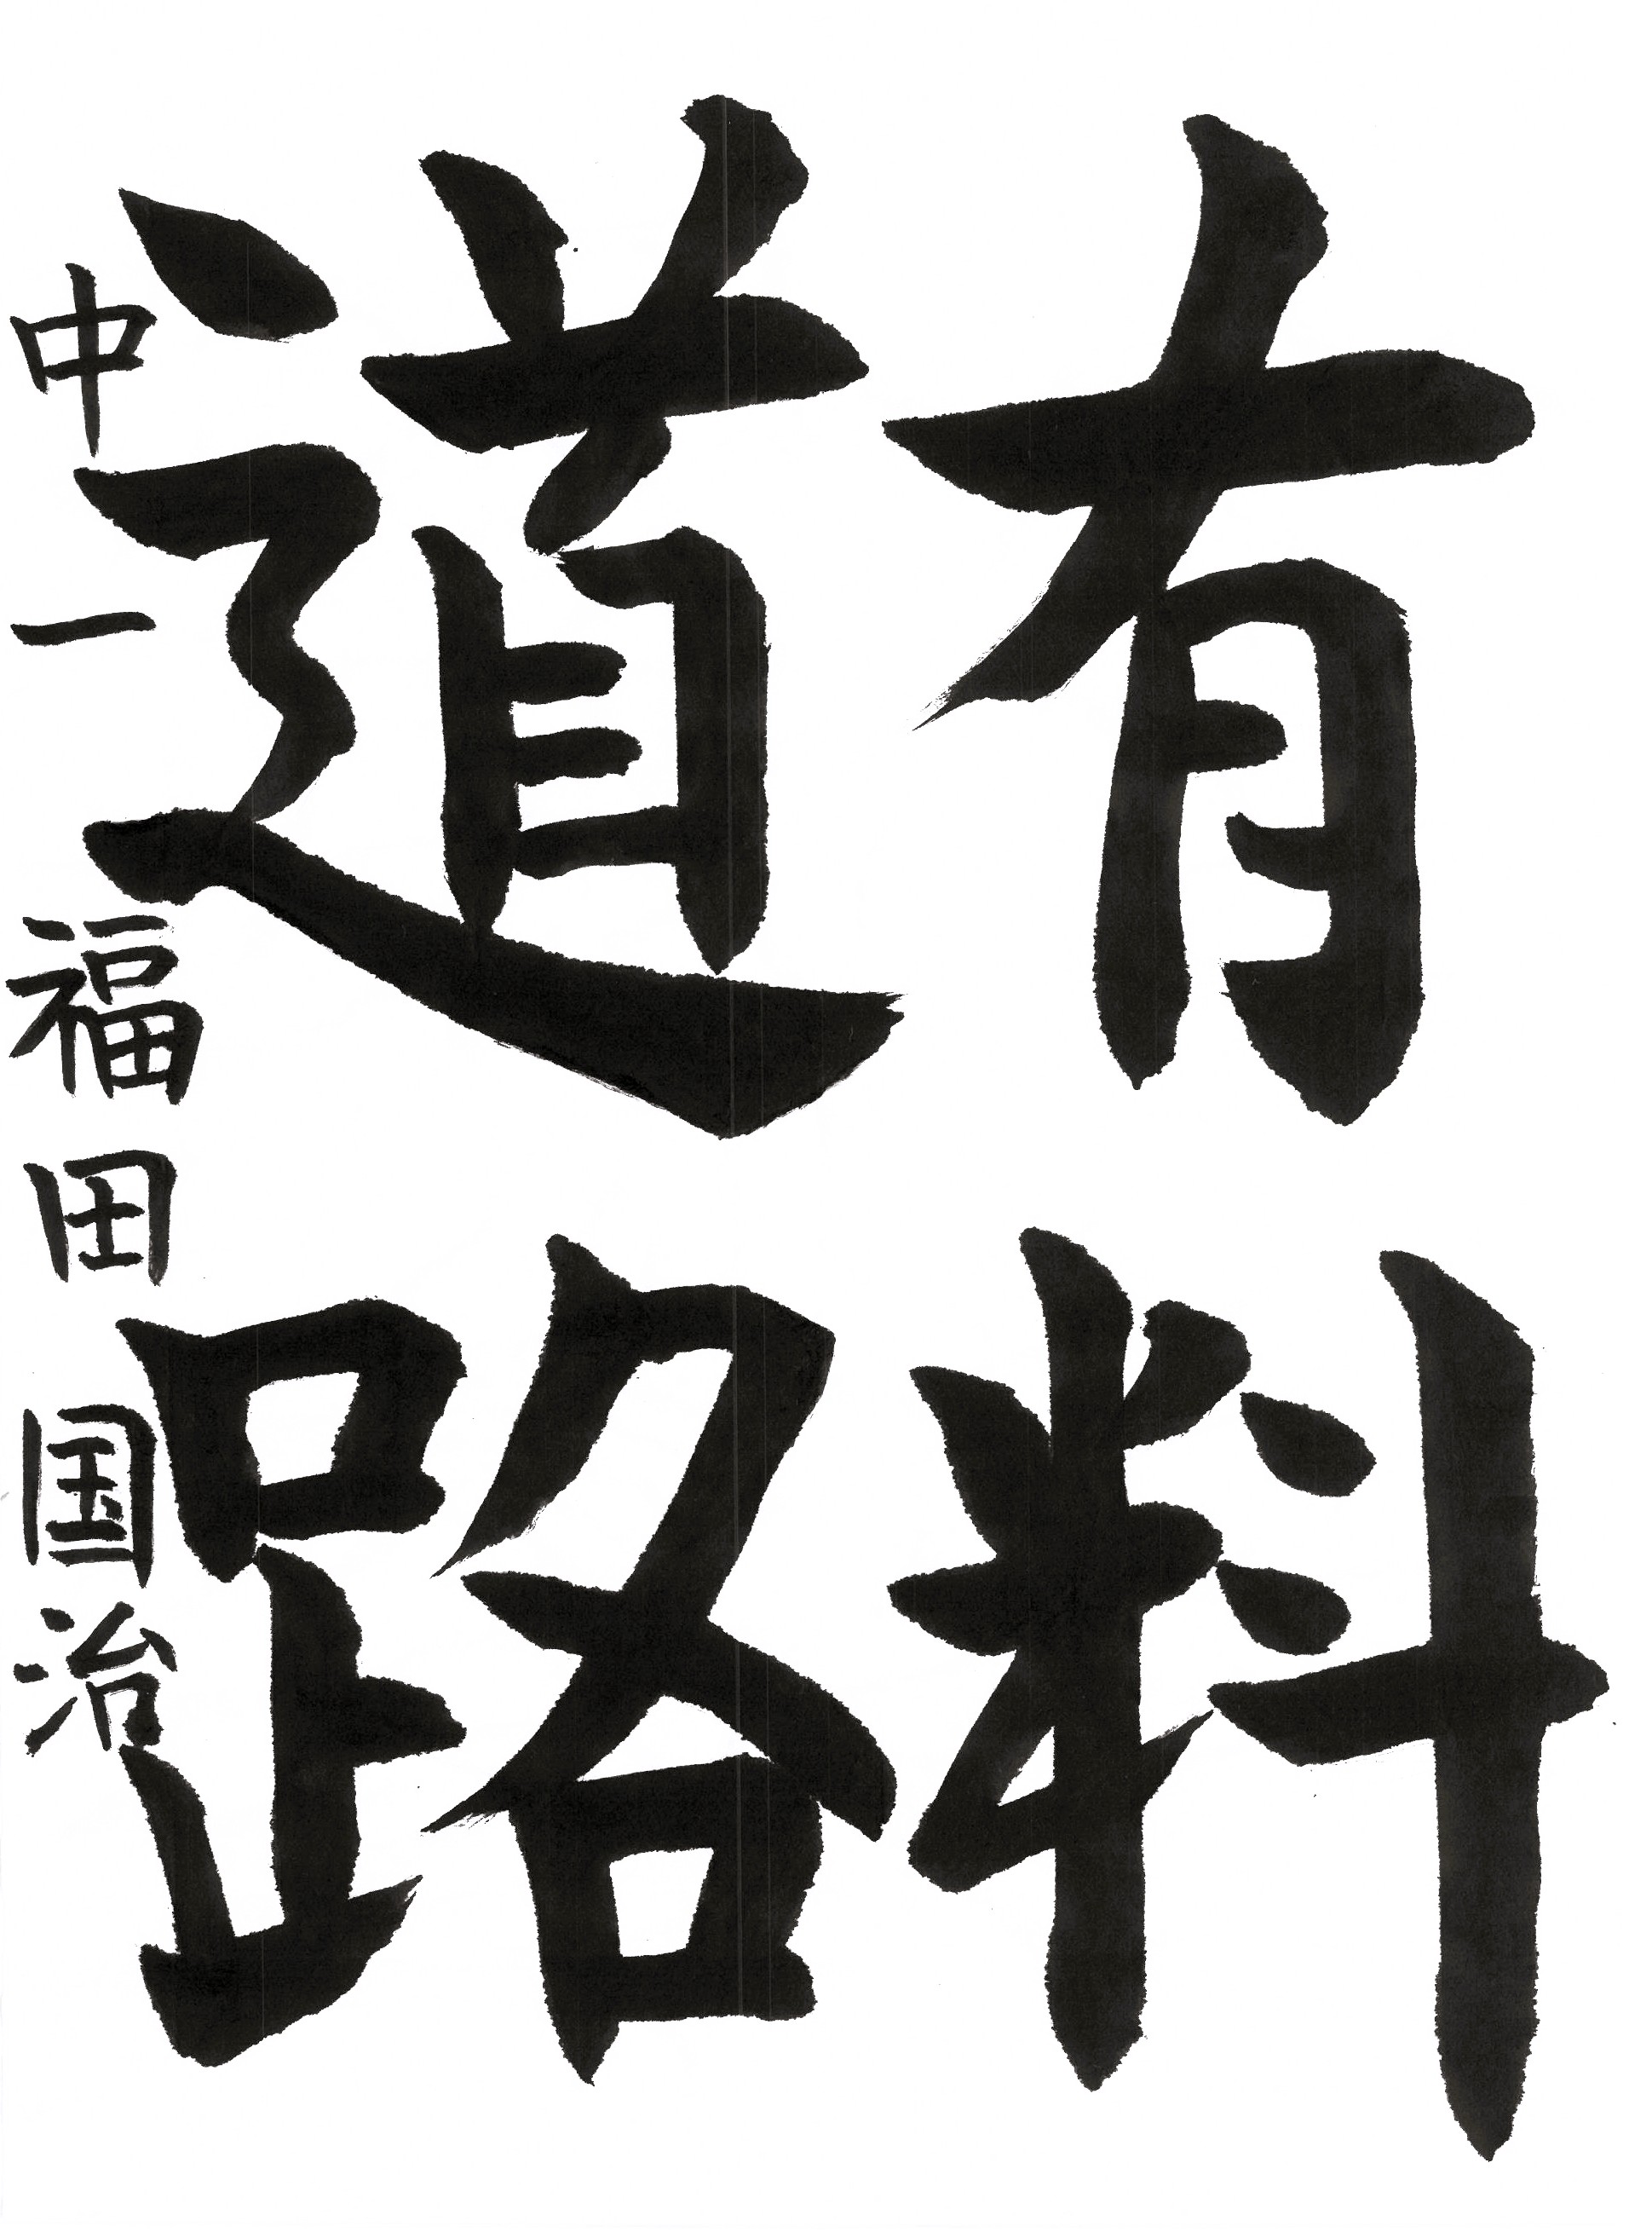 有料
道路
中一 福田国治